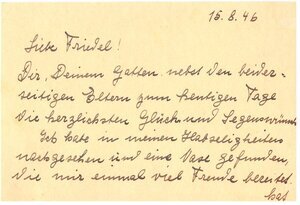 15.8.46
Liebe Friedel!
Dir, Deinem Gatten nebst den beider-
seitigen Eltern zum heutigen Tage
die herzlichsten Glück und Segenswünsche
Ich habe in meinen Habseligkeiten
nachgesehen und eine Vase gefunden,
die mir einmal viel Freude bereitet
hat